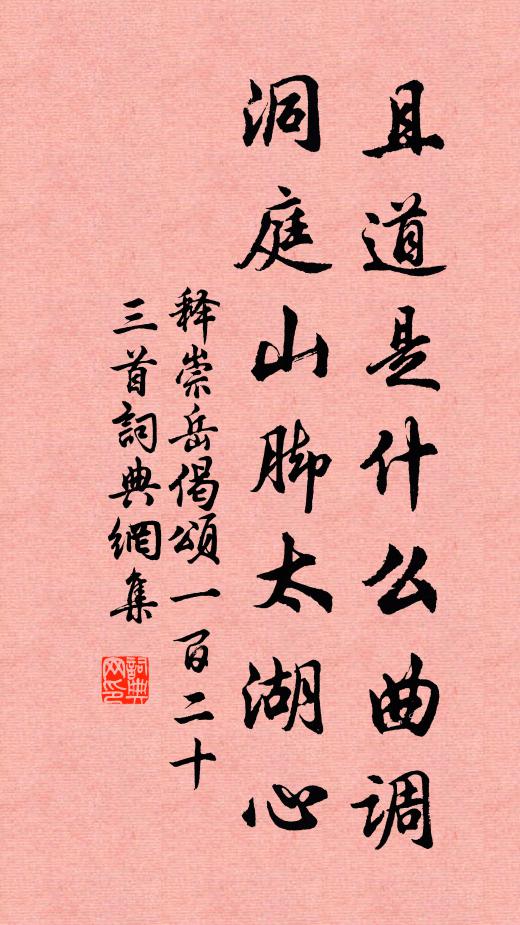 且道是什么曲调
洞庭山脚太湖心
释崇岳偈颂一百二十
三首詞典網集
詞典网印